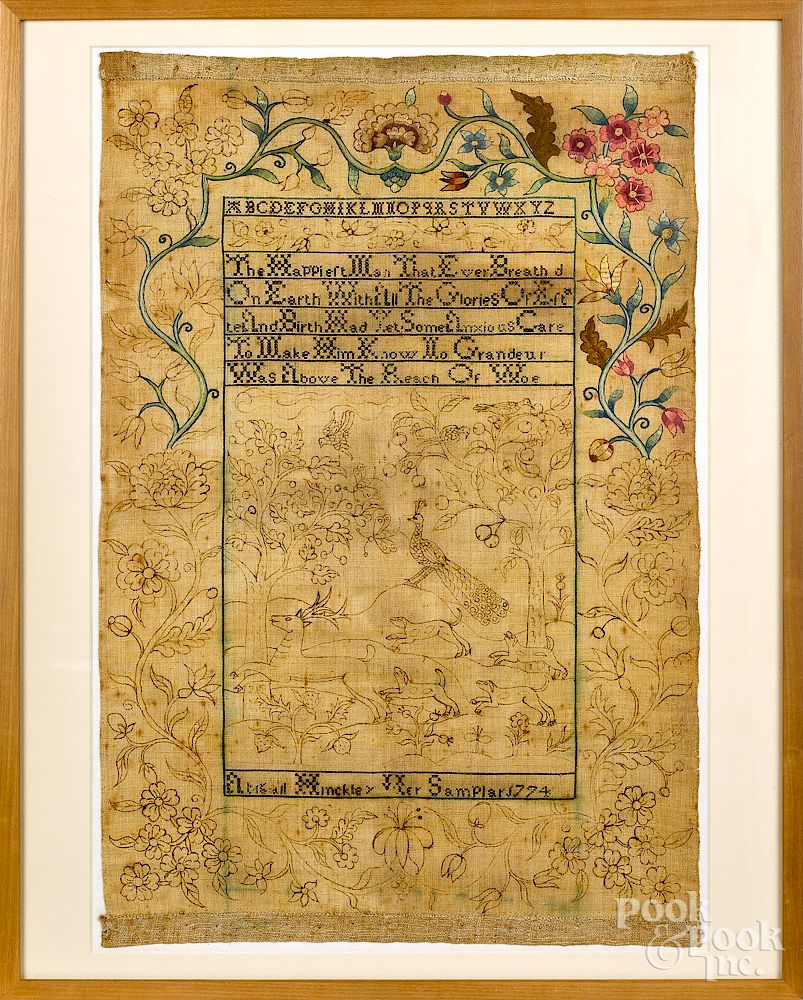 ABCDEFGHIKLMNOPQRSTVWXYZ
The Happiest Man That Ever Breath d
On Earth With All The Glories Of Est a
te And Birth Had Yet Some Anxious Care
To Make Him Know No Grandeur
Was Above The Reach Of Woe
Abigail Hinckley Her Samplar 1794
Pook
& Pook
Inc.